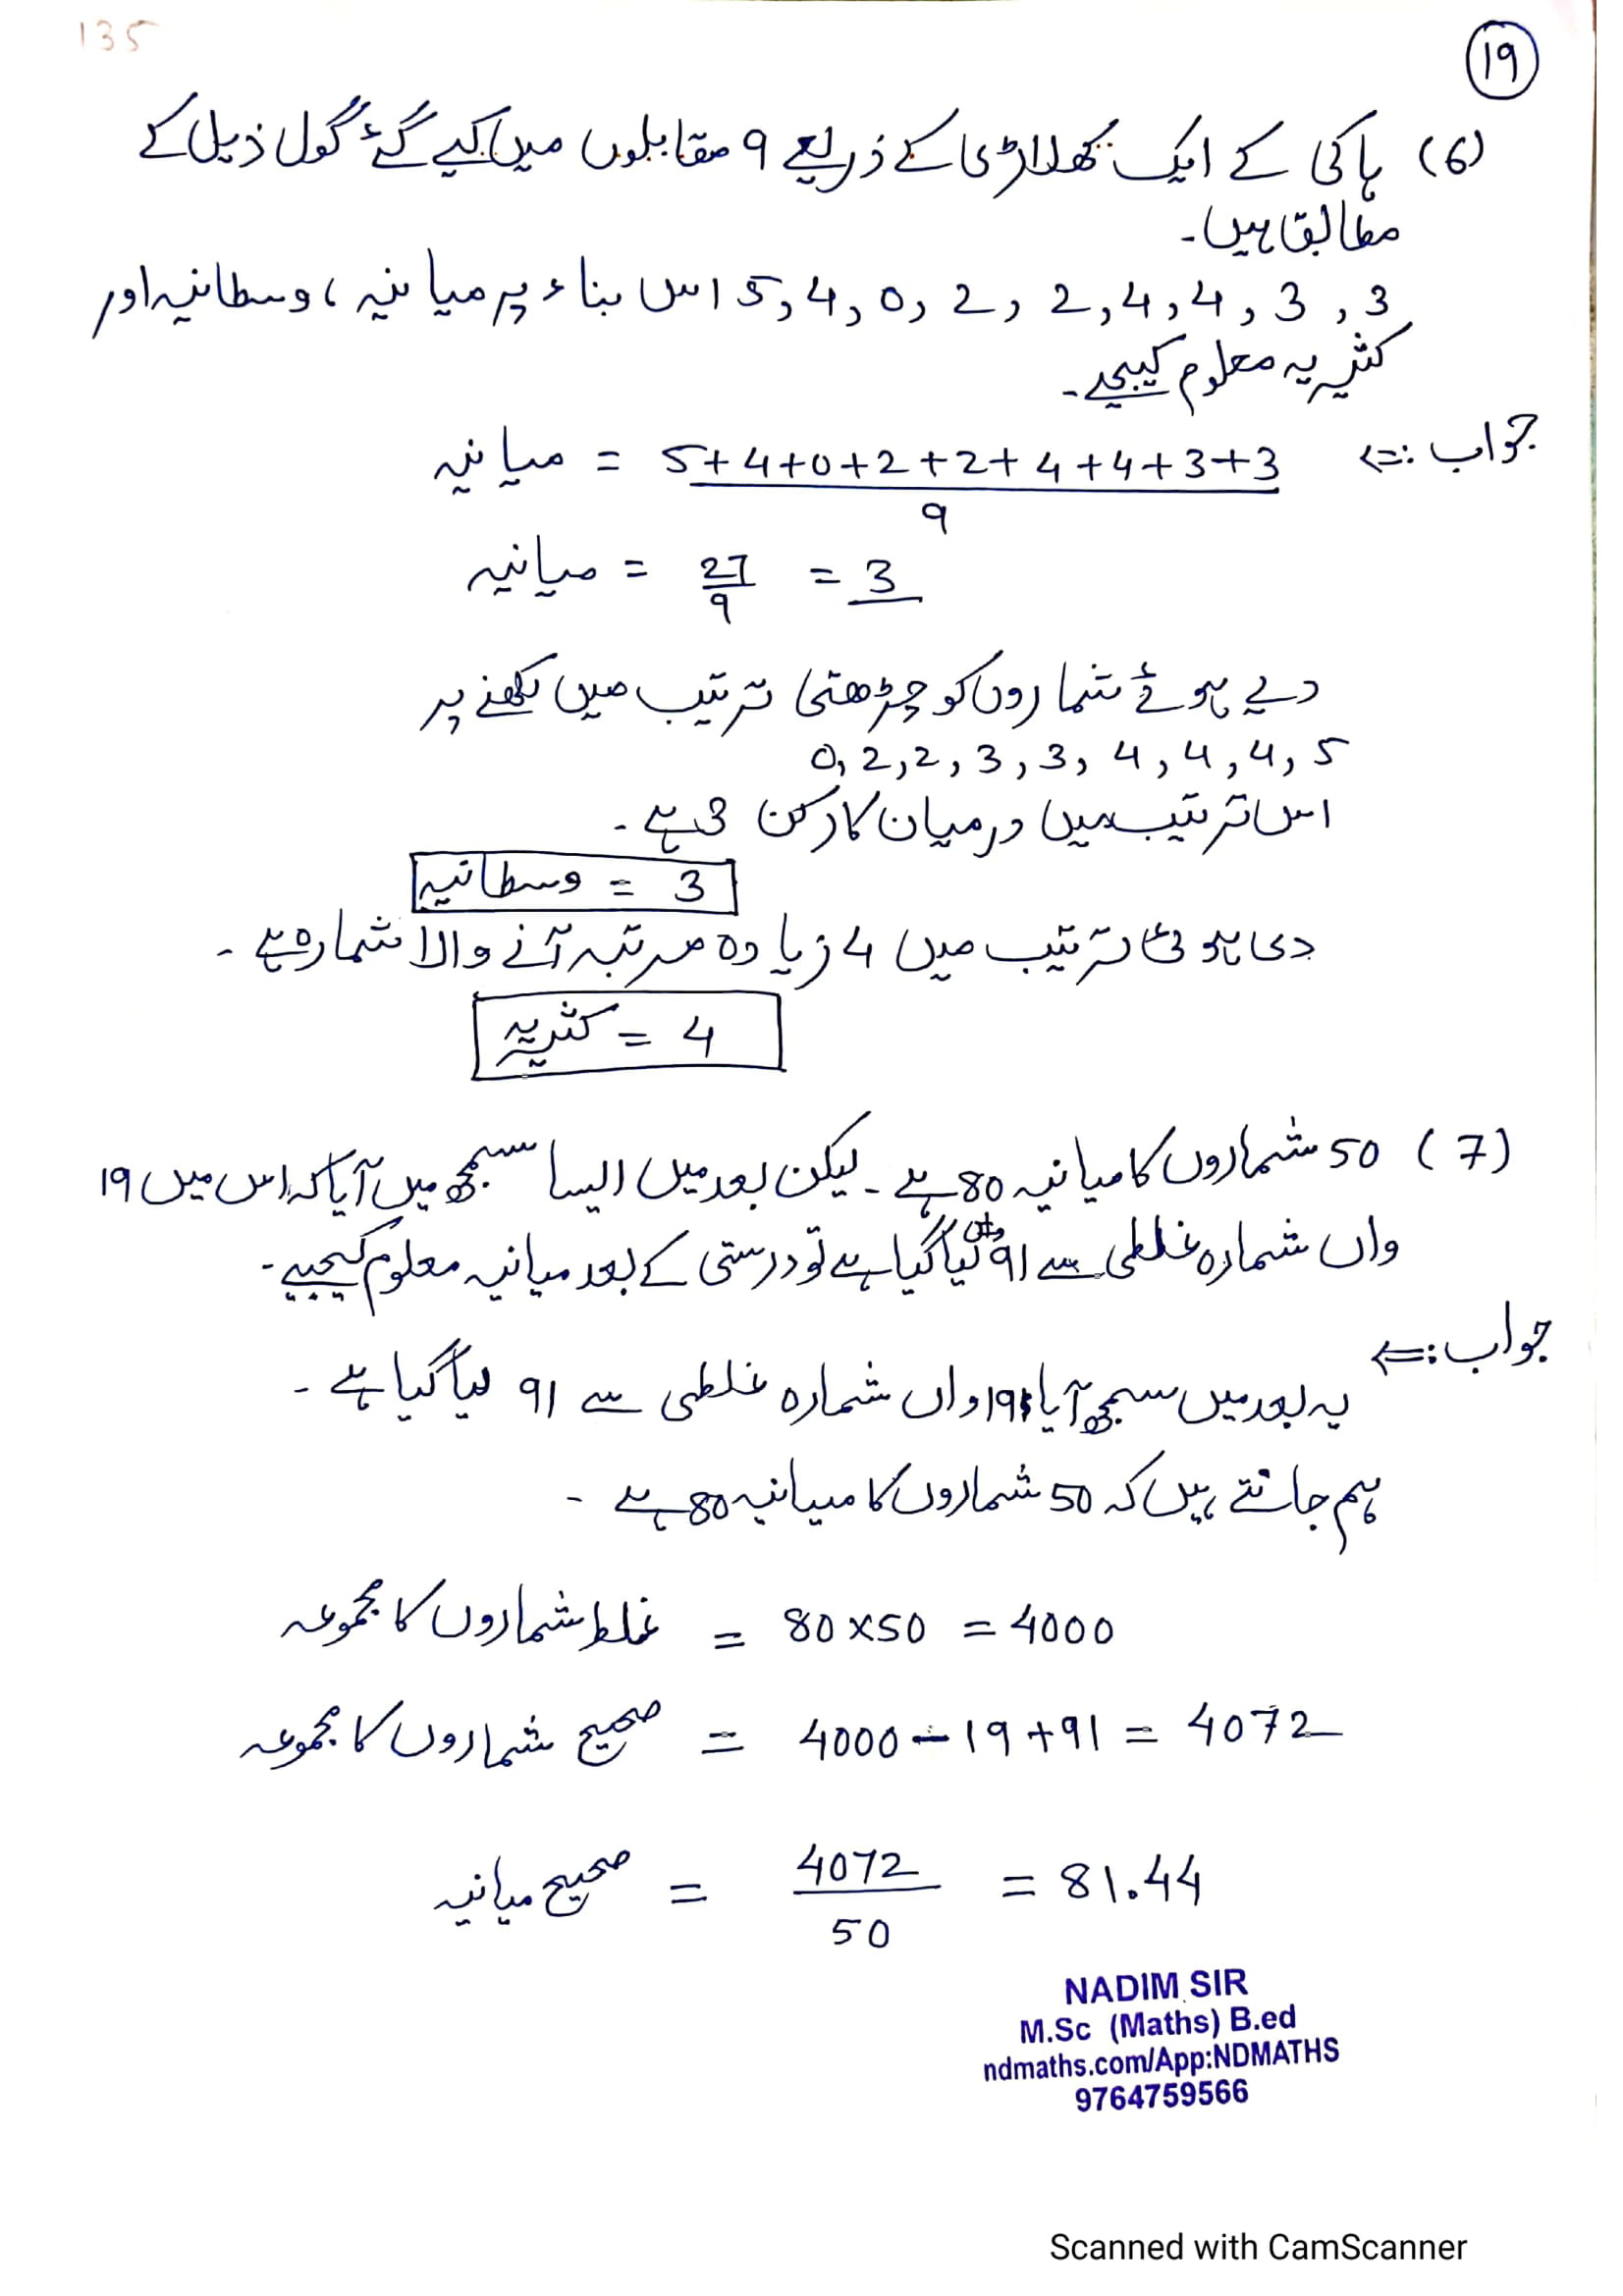 135
19
(6) ہاکی کے ایک کھلاڑی کے ذریعے 9 مقابلوں میں کیے گئے گول ذیل کے
مطابق ہیں۔
5,4,0,2,2,4,4,3,3 اس بناء پر میانیہ، وسطانیہ اور
کثریہ معلوم کیجیے۔
جواب :⇐ میانیہ = 5+4+0+2+2+4+4+3+3 / 9
میانیہ = 27/9 = 3
دیے ہوئے شماروں کو چڑھتی ترتیب میں لکھنے پر
0,2,2,3,3,4,4,4,5
اس ترتیب میں درمیان کا رکن 3 ہے۔
وسطانیہ = 3
دی ہوئی ترتیب میں 4 زیادہ مرتبہ آنے والا شمارہ ہے۔
کثریہ = 4
(7) 50 شماروں کا میانیہ 80 ہے۔ لیکن بعد میں ایسا سمجھ میں آیا کہ اس میں 19
واں شمارہ غلطی سے 91 لیا گیا ہے تو درستی کے بعد میانیہ معلوم کیجیے۔
جواب :⇐
یہ بعد میں سمجھ آیا 19 واں شمارہ غلطی سے 91 لیا گیا ہے۔
ہم جانتے ہیں کہ 50 شماروں کا میانیہ 80 ہے۔
غلط شماروں کا مجموعہ = 80×50 = 4000
صحیح شماروں کا مجموعہ = 4000 - 19 + 91 = 4072
صحیح میانیہ = 4072/50 = 81.44
NADIM SIR
M.Sc (Maths) B.ed
ndmaths.com/App:NDMATHS
9764759566
Scanned with CamScanner